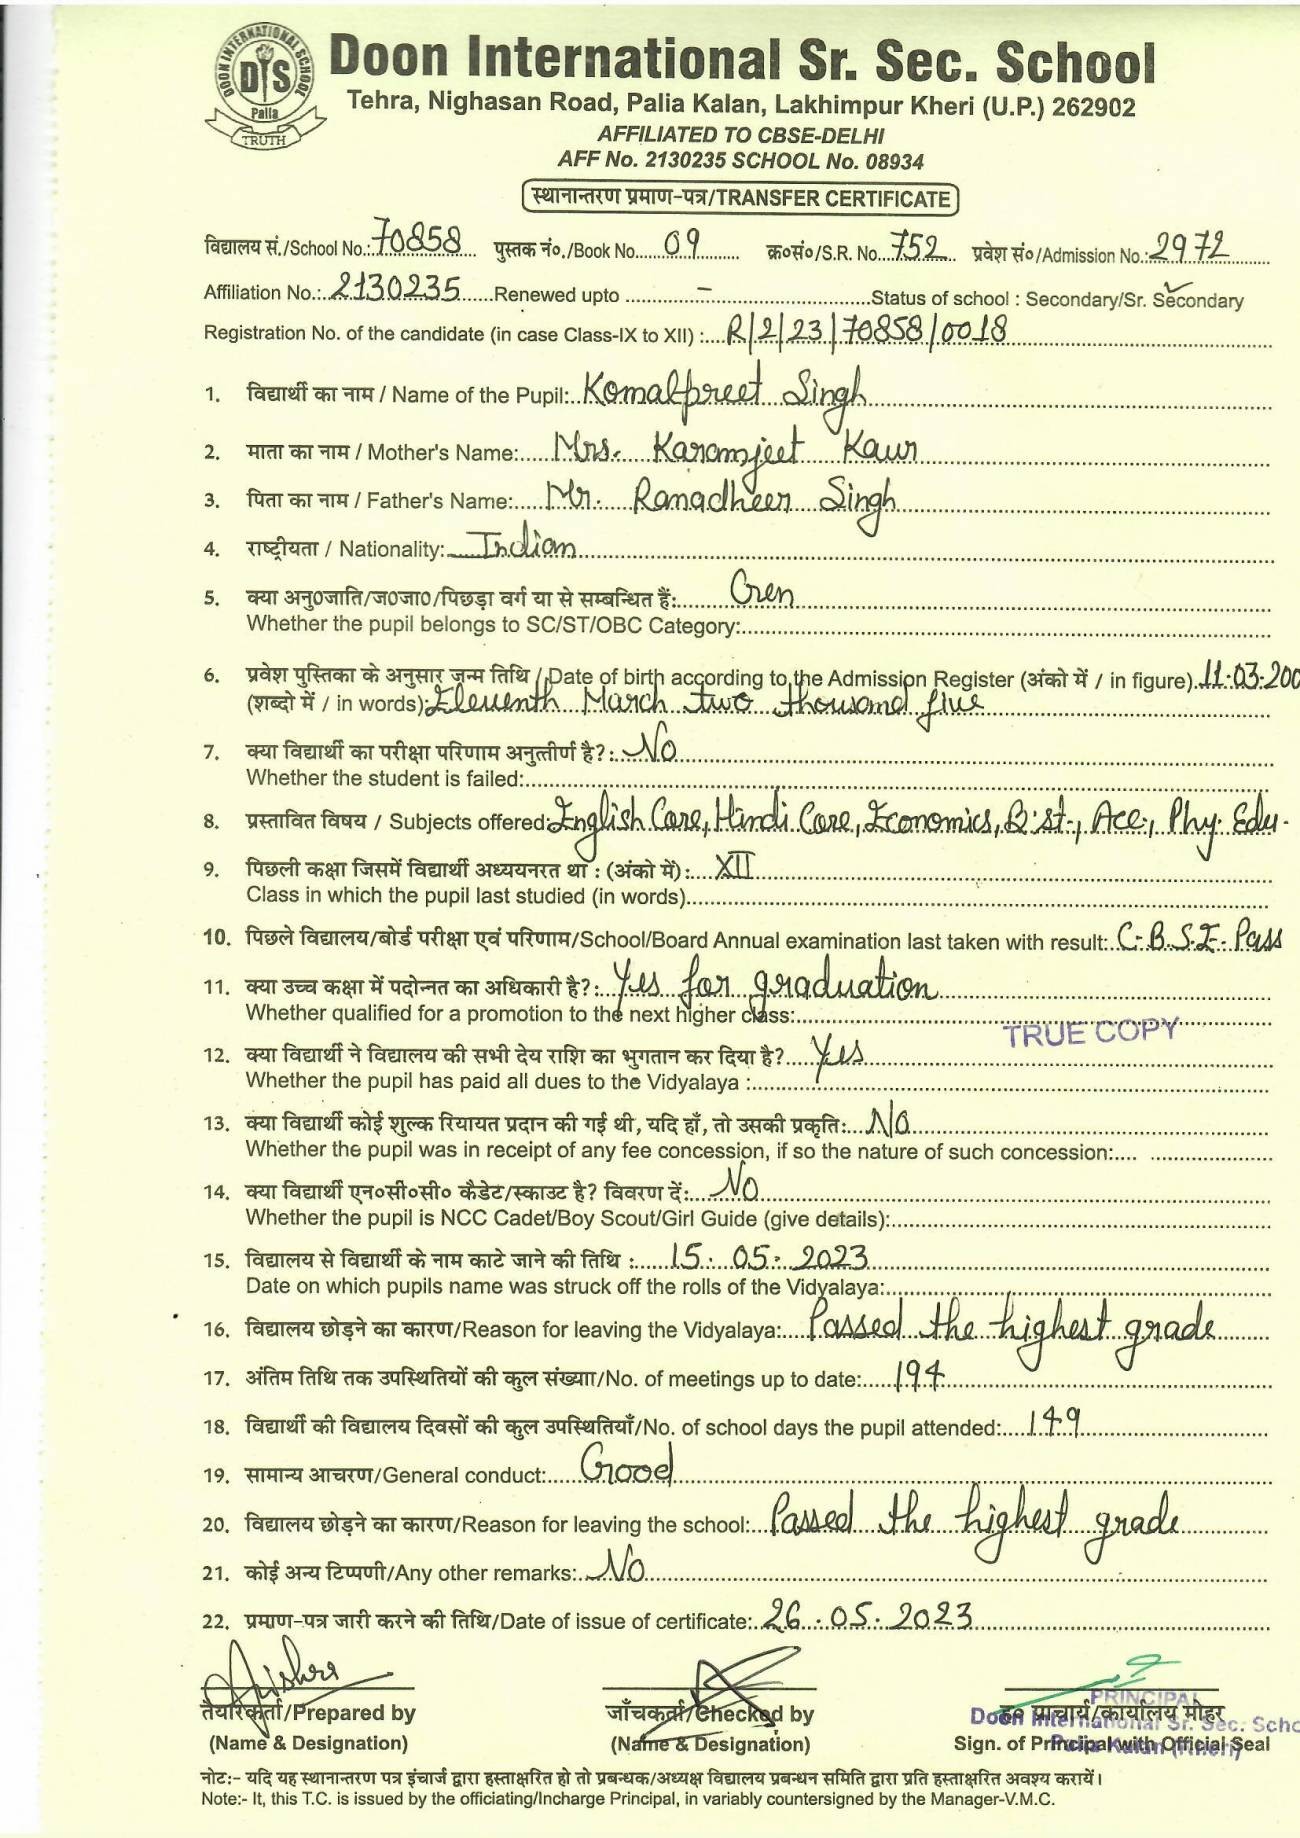 DOON INTERNATIONAL SCHOOL
DIS
Palia
TRUTH
Doon International Sr. Sec. School
Tehra, Nighasan Road, Palia Kalan, Lakhimpur Kheri (U.P.) 262902
AFFILIATED TO CBSE-DELHI
AFF No. 2130235 SCHOOL No. 08934
स्थानान्तरण प्रमाण-पत्र/TRANSFER CERTIFICATE
विद्यालय सं./School No.: 70858 पुस्तक नं०./Book No. 09 क्र०सं०/S.R. No. 752 प्रवेश सं०/Admission No.: 2972
Affiliation No.: 2130235 Renewed upto - Status of school : Secondary/Sr. Secondary
Registration No. of the candidate (in case Class-IX to XII) : R/2/23/70858/0018
1. विद्यार्थी का नाम / Name of the Pupil: Komalpreet Singh
2. माता का नाम / Mother's Name: Mrs. Karamjeet Kaur
3. पिता का नाम / Father's Name: Mr. Ranadheer Singh
4. राष्ट्रीयता / Nationality: Indian
5. क्या अनु0जाति/ज0जा0/पिछड़ा वर्ग या से सम्बन्धित हैं: Gen
Whether the pupil belongs to SC/ST/OBC Category:
6. प्रवेश पुस्तिका के अनुसार जन्म तिथि / Date of birth according to the Admission Register (अंको में / in figure). 11.03.200
(शब्दो में / in words): Eleventh March two thousand five
7. क्या विद्यार्थी का परीक्षा परिणाम अनुत्तीर्ण है?: No
Whether the student is failed:
8. प्रस्तावित विषय / Subjects offered: English Core, Hindi Core, Economics, B.st., Acc., Phy. Edu.
9. पिछली कक्षा जिसमें विद्यार्थी अध्ययनरत था : (अंको में) : XII
Class in which the pupil last studied (in words)
10. पिछले विद्यालय/बोर्ड परीक्षा एवं परिणाम/School/Board Annual examination last taken with result: C.B.S.E. Pass
11. क्या उच्च कक्षा में पदोन्नत का अधिकारी है?: Yes for graduation
Whether qualified for a promotion to the next higher class:
TRUE COPY
12. क्या विद्यार्थी ने विद्यालय की सभी देय राशि का भुगतान कर दिया है? Yes
Whether the pupil has paid all dues to the Vidyalaya :
13. क्या विद्यार्थी कोई शुल्क रियायत प्रदान की गई थी, यदि हाँ, तो उसकी प्रकृति: No
Whether the pupil was in receipt of any fee concession, if so the nature of such concession:
14. क्या विद्यार्थी एन०सी०सी० कैडेट/स्काउट है? विवरण दें: No
Whether the pupil is NCC Cadet/Boy Scout/Girl Guide (give details):
15. विद्यालय से विद्यार्थी के नाम काटे जाने की तिथि : 15.05.2023
Date on which pupils name was struck off the rolls of the Vidyalaya:
16. विद्यालय छोड़ने का कारण/Reason for leaving the Vidyalaya: Passed the highest grade
17. अंतिम तिथि तक उपस्थितियों की कुल संख्याा/No. of meetings up to date: 194
18. विद्यार्थी की विद्यालय दिवसों की कुल उपस्थितियाँ/No. of school days the pupil attended: 149
19. सामान्य आचरण/General conduct: Good
20. विद्यालय छोड़ने का कारण/Reason for leaving the school: Passed the highest grade
21. कोई अन्य टिप्पणी/Any other remarks: No
22. प्रमाण-पत्र जारी करने की तिथि/Date of issue of certificate: 26.05.2023
तैयारकर्ता/Prepared by जाँचकर्ता/Checked by ह० प्राचार्य/कार्यालय मोहर
PRINCIPAL
Doon International Sr. Sec. Scho
Palia Kalan (Kheri)
(Name & Designation) (Name & Designation) Sign. of Principal with Official Seal
नोट:- यदि यह स्थानान्तरण पत्र इंचार्ज द्वारा हस्ताक्षरित हो तो प्रबन्धक/अध्यक्ष विद्यालय प्रबन्धन समिति द्वारा प्रति हस्ताक्षरित अवश्य करायें।
Note:- It, this T.C. is issued by the officiating/Incharge Principal, in variably countersigned by the Manager-V.M.C.